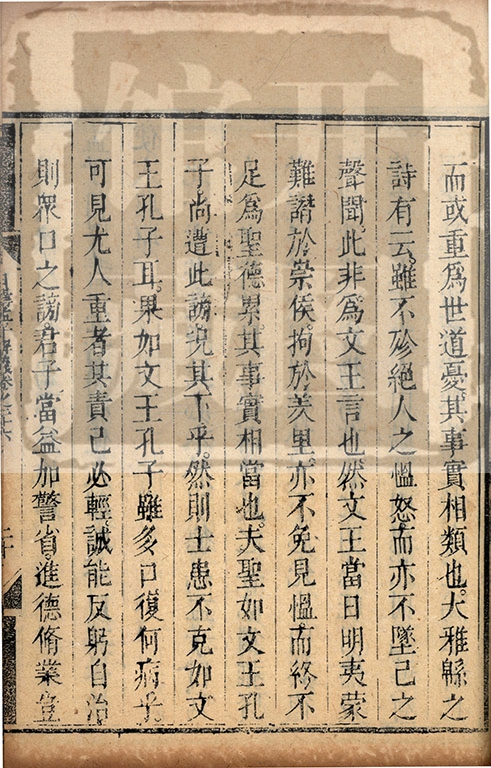 而或重爲世道憂其事實相類也大雅緜之
詩有云雖不殄絕人之慍怒而亦不墜己之
聲聞此非爲文王言也然文王當日明夷蒙
難譖於崇侯拘於羑里亦不免見慍而終不
足爲聖德累其事實相當也夫聖如文王孔
子尚遭此謗況其下乎然則士患不克如文
王孔子耳果如文王孔子雖多口復何病乎
可見尤人重者其責己必輕誠能反躬自治
則眾口之謗君子當益加警省進德脩業豈
日講
解義卷之二十六